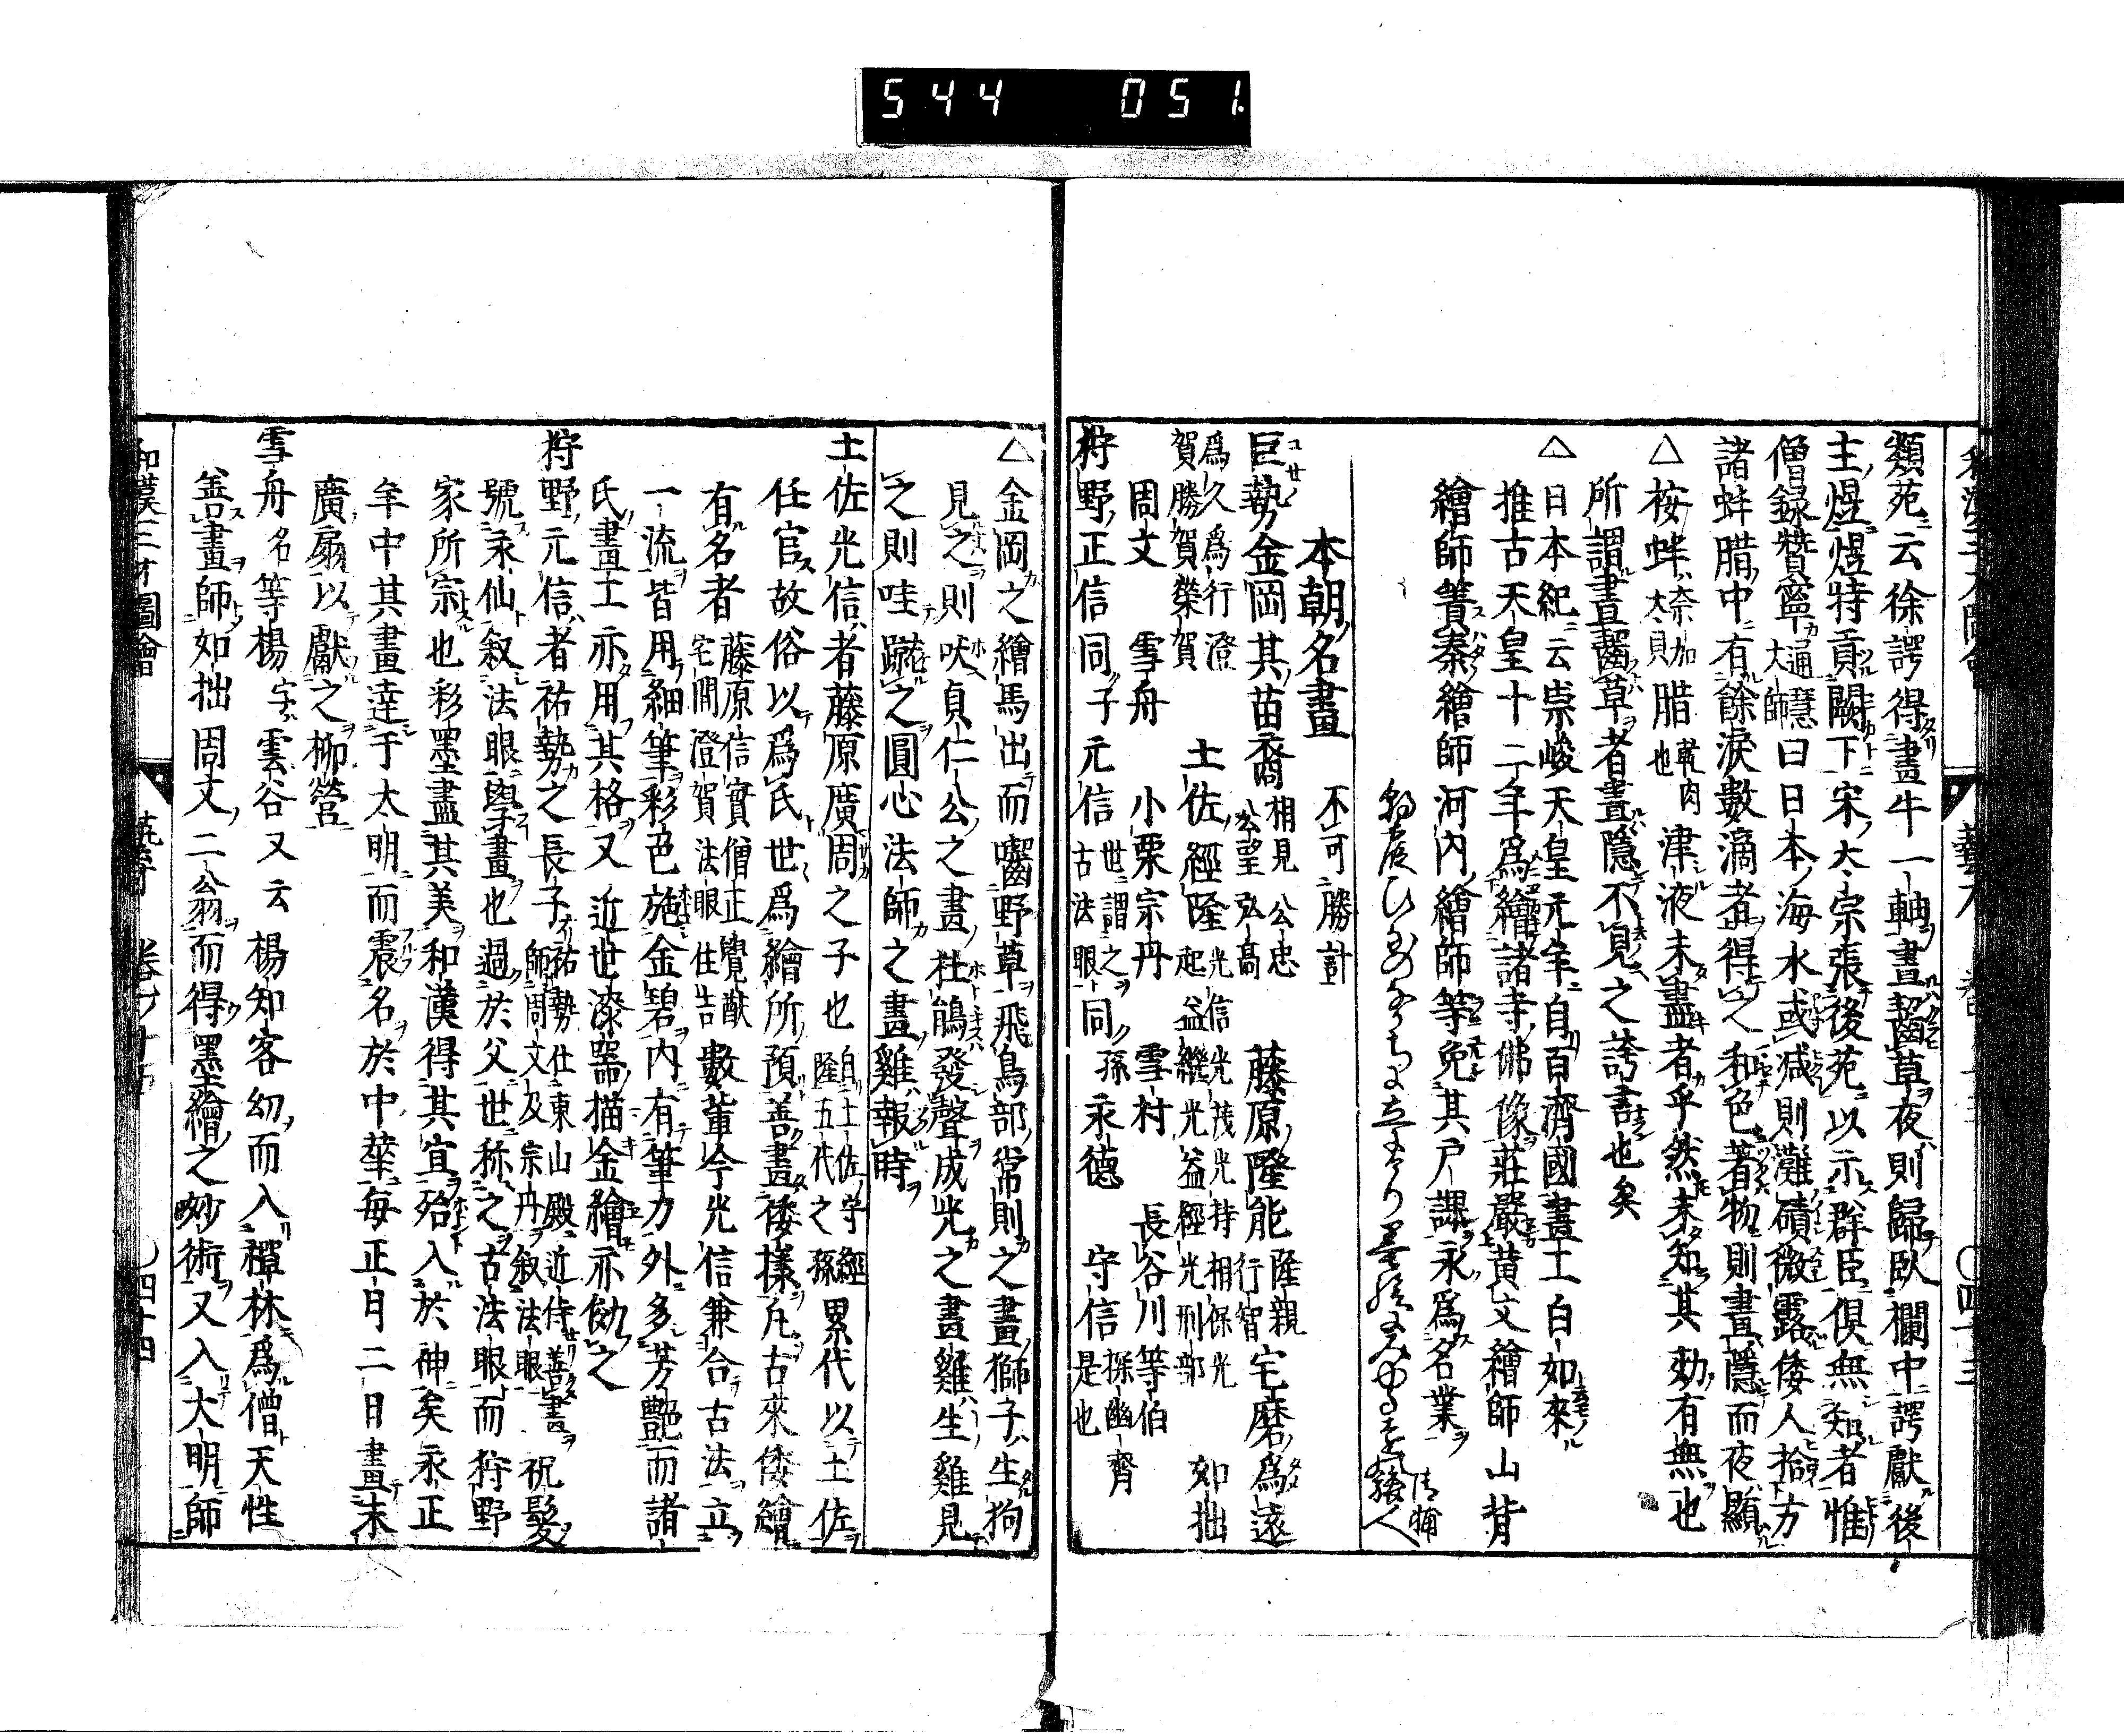 544 051
類苑云徐諤得畫牛一軸畫齧草夜則歸臥欄中諤獻後
主煜煜特貢闕下宋太宗張後苑以示群臣俱無知者惟
僧録贊寧通慧大師曰日本海水或減則灘磧微露倭人拾方
諸蚌腊中有餘涙數滴者得之和色著物則晝隱而夜顯
△按蚌奈加太貝腊乾肉也津液未盡者乎然未知其効有無也
所謂晝齧草者晝隱不見之誇言也矣
△日本紀云崇峻天皇元年自百濟國畫工白如來
推古天皇十二年爲繪諸寺佛像莊嚴黄文繪師山背
繪師簀秦繪師河内繪師等免其戸課永爲名業
清輔
本朝名畫 不可勝計
巨勢金岡其苗裔相見公忠公望弘高藤原隆能隆親行智宅磨爲遠
爲久爲行澄賀勝賀榮賀 土佐經隆光信光茂光持相保光起益繼光益經光刑部 如拙
周文 雪舟 小栗宗丹 雪村 長谷川等伯
狩野正信同子元信世謂之古法眼同孫永德 守信探幽齊是也
△金岡之繪馬出而囓野草飛鳥部常則之畫獅子生狗
見之則吠貞仁公之畫杜鵑發聲成光之畫雞生雞見
之則哇蹴之圓心法師之畫雞報時
土佐光信者藤原廣周之子也自土佐守經隆五代之孫累代以土佐
任官故俗以爲氏世爲繪所預善畫倭樣凡古來倭繪
有名者藤原信實僧正覺猷宅間澄賀法眼住吉數軰今光信兼合古法立
一流皆用細筆彩色施金碧内有筆力外多芳艶而諸
氏畫工亦用其格又近世漆噐描金繪亦傚之
狩野元信者祐勢之長子祐勢仕東山殿近侍善畫師周文及宗丹叙法眼祝髮
號永仙叙法眼學畫也過於父世称之古法眼而狩野
家所宗也彩墨盡其美和漢得其宜殆入於神矣永正
年中其畫達于大明而震名於中華毎正月二日畫末
廣扇以獻之柳營
雪舟名等楊字雲谷又云楊知客幼而入禪林爲僧天性
善畫師如拙周文二翁而得墨繪之妙術又入大明師
和漢三才圖會 藝才 卷十五 〇四十四